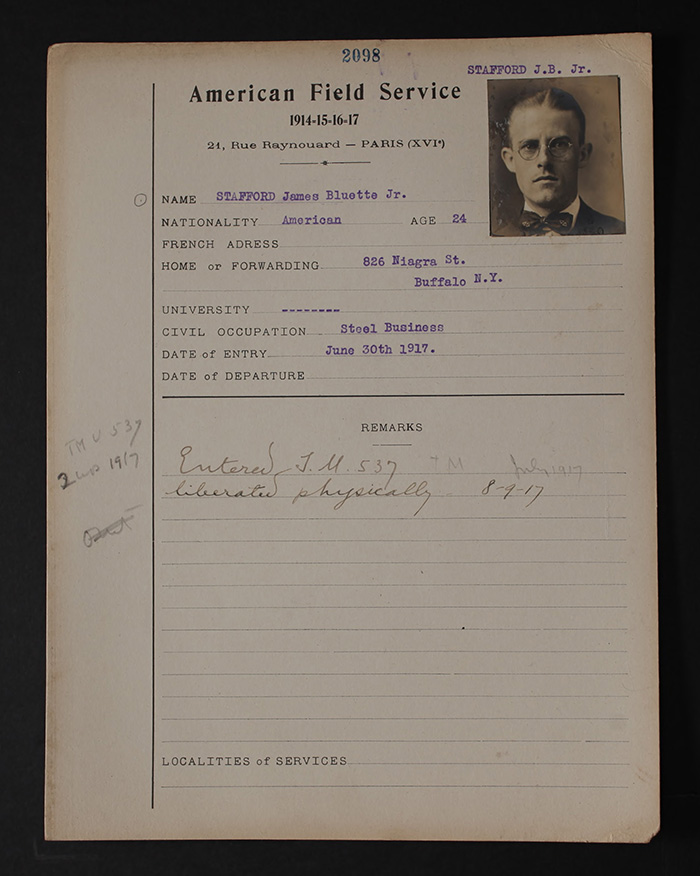 2098
STAFFORD J.B. Jr.
American Field Service
1914-15-16-17
21, Rue Raynouard — PARIS (XVIe)
NAME STAFFORD James Bluette Jr.
NATIONALITY American AGE 24
FRENCH ADRESS
HOME or FORWARDING 826 Niagra St.
Buffalo N.Y.
UNIVERSITY --------
CIVIL OCCUPATION Steel Business
DATE of ENTRY June 30th 1917.
DATE of DEPARTURE
REMARKS
TM U 537
2 1917
Entered T.M. 537 TM July 1917
liberated physically. 8-9-17
LOCALITIES of SERVICES